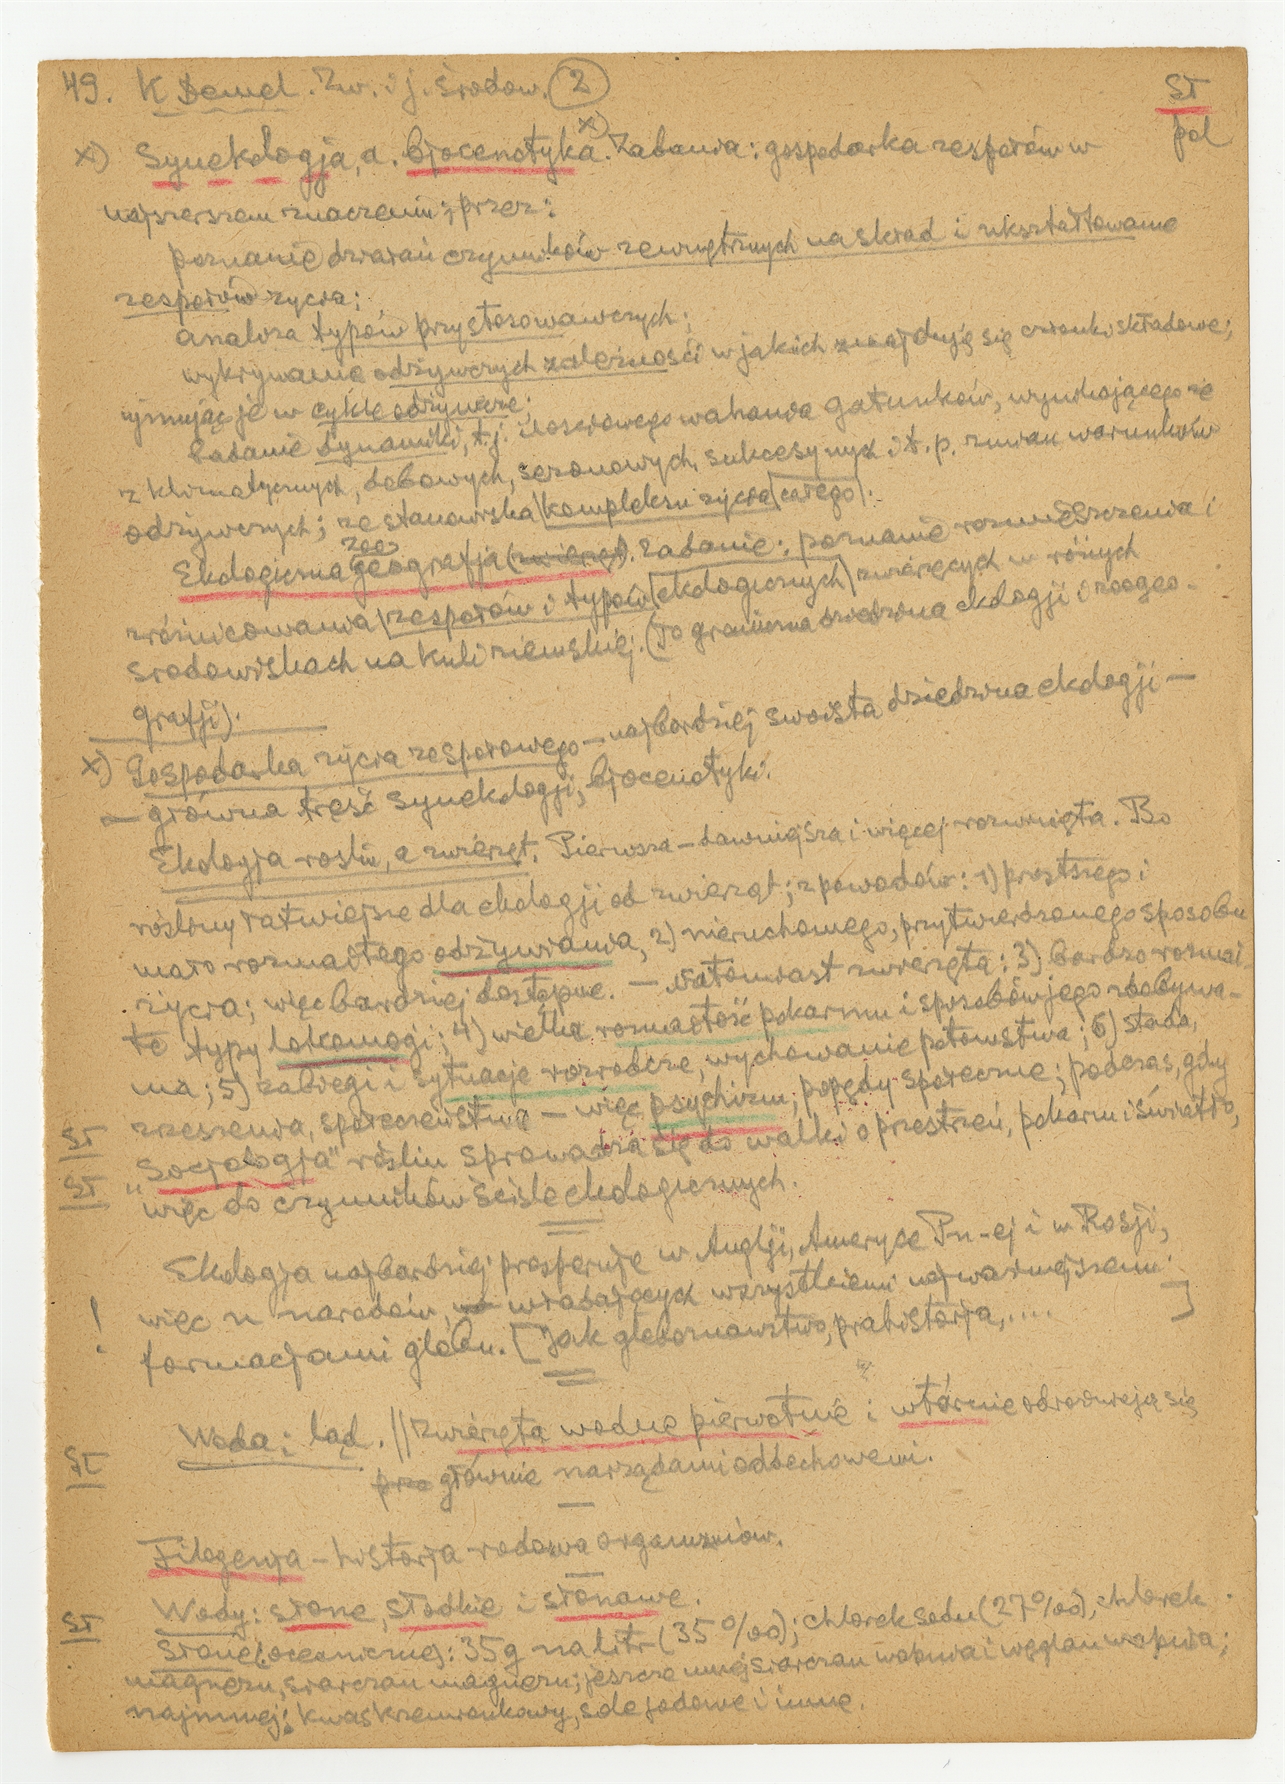 49. K Demel. Zw. i j. środow. (2) ST
x) Synekologja, a. bjocenotyka. x) Zadania: gospodarka zespołów w pol
najszerszem znaczeniu; przez:
poznanie działań czynników zewnętrznych na skład i ukształtowanie
zespołów życia;
analiza typów przystosowawczych;
wykrywanie odżywczych zależności w jakich znajdują się członki składowe;
ujmując je w cykle odżywcze;
badanie dynamiki, t.j. ilościowego wahania gatunków, wynikającego ze
z klimatycznych, dobowych, sezonowych, sukcesyjnych i t.p. zmian warunków
odżywczych; ze stanowiska kompleksu życia całego.
Ekologiczna zoogeografja (zwierząt). Zadanie: poznanie rozmieszczenia i
zróżnicowania zespołów i typów ekologicznych zwierzęcych w różnych
środowiskach na kuli ziemskiej. (To graniczna dziedzina ekologji i zoogeo-
grafji).
x) Gospodarka życia zespołowego – najbardziej swoista dziedzina ekologji –
– główna treść synekologji, bjocenotyki.
Ekologja roślin, a zwierząt. Pierwsza – dawniejsza i więcej rozwinięta. Bo
rośliny łatwiejsze dla ekologji od zwierząt; z powodów: 1) prostszego i
mało rozmaitego odżywiania, 2) nieruchomego, przytwierdzonego sposobu
życia; więc bardziej dostępne. – Natomiast zwierzęta: 3) bardzo rozmai-
te typy lokomocji; 4) wielka rozmaitość pokarmu i sposobów jego zdobywa-
nia; 5) zabiegi i sytuacje rozrodcze, wychowanie potomstwa; 6) stada,
zrzeszenia, społeczeństwa – więc psychizm, popędy społeczne; podczas, gdy
ST „Socjologja" roślin sprowadza się do walki o przestrzeń, pokarm i światło,
ST więc do czynników ściśle ekologicznych.
Ekologja najbardziej prosperuje w Anglji, Ameryce Pn-ej i w Rosji,
! więc u narodów, władających wszystkiemi najważniejszemi
formacjami globu. [Jak gleboznawstwo, prahistorja,....]
Woda; ląd. || Zwierzęta wodne pierwotnie i wtórnie odróżniają się
ST głównie narządami oddechowemi.
Filogenja – historja rodowa organizmów.
Wody: słone, słodkie i słonawe.
ST Słone (oceaniczne): 35g na litr (35 %00); chlorek sodu (27%00), chlorek
magnezu, siarczan magnezu; jeszcze mniej siarczan wapnia i węglan wapnia;
najmniej: kwas krzemionkowy, sole jodowe i inne.